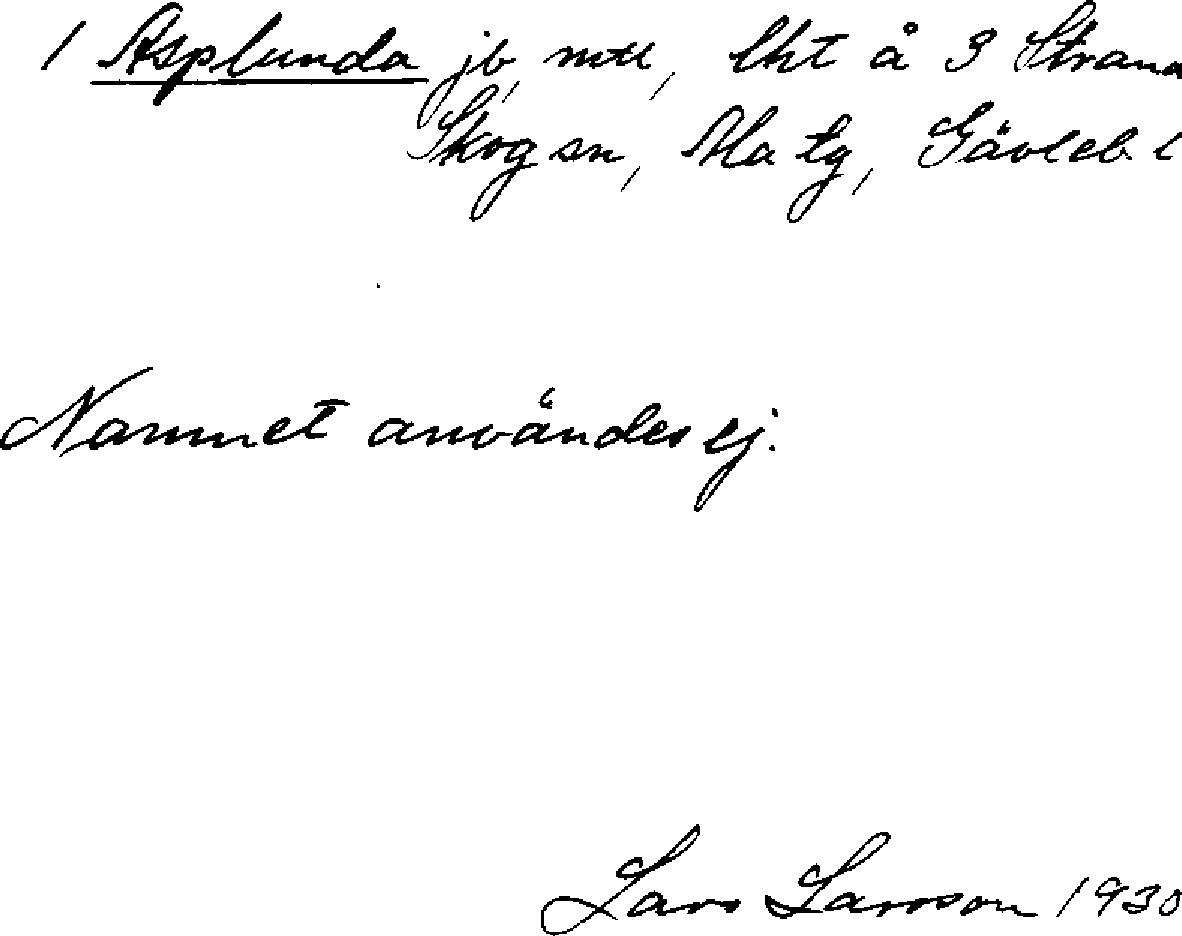 1 Asplunda jb, mtl, lht å 3 Strand
Skog sn, Ala tg, Gävleb. l
Namnet användes ej.
Lars Larsson 1930